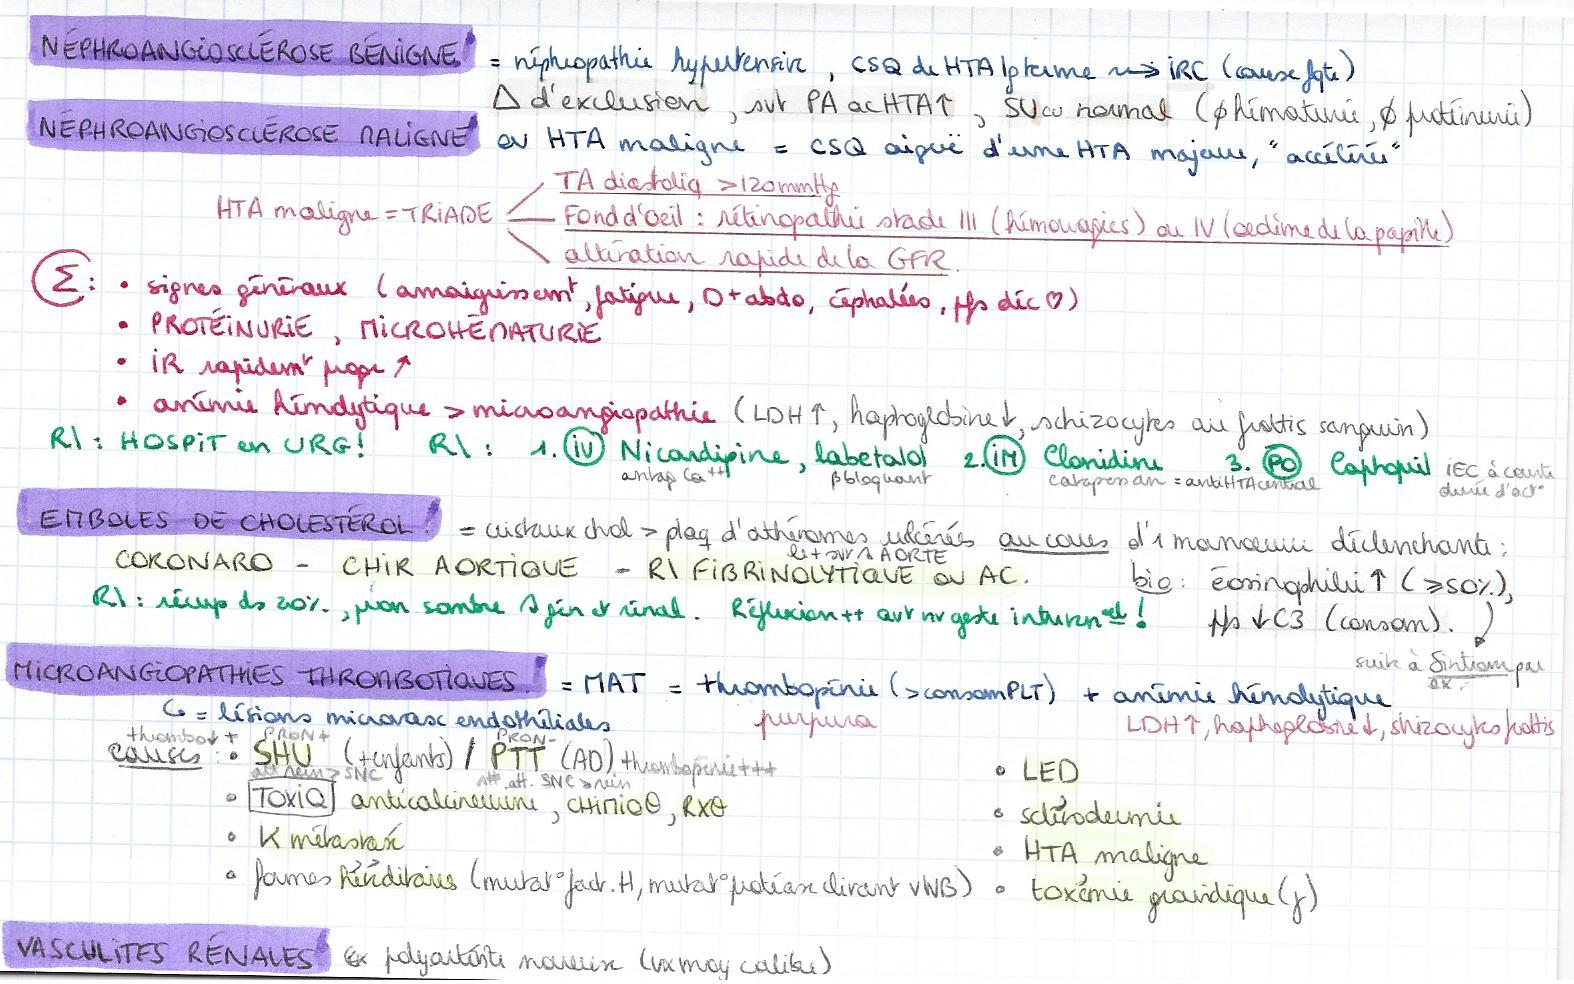 NÉPHROANGIOSCLÉROSE BÉNIGNE = néphropathie hypertensive, CSQ de HTA lg terme ⇝ iRC (cause fqte)
Δ d'exclusion, svt PA ac HTA↑, SU normal (φ hématurie, φ protéinurie)
NÉPHROANGIOSCLÉROSE MALIGNE ou HTA maligne = CSQ aiguë d'une HTA majeure, "accélérée"
TA diastoliq >120mmHg
HTA maligne = TRIADE Fond d'oeil : rétinopathie stade III (hémorragies) ou IV (oedème de la papille)
altération rapide de la GFR.
Σ : • signes généraux (amaigrissemt, fatigue, D+ abdo, céphalées, pfs déc ♡)
• PROTÉINURIE, MICROHÉMATURIE
• iR rapidemt progr ↑
• anémie hémolytique > microangiopathie (LDH↑, haptoglobine↓, schizocytes au frottis sanguin)
R\ : HOSPiT en URG! R\ : 1. iV Nicardipine, labetalol 2. iM Clonidine 3. PO Captopril iEC à courte
antag Ca++ βbloquant catapressan = antiHTA central durée d'act°
EMBOLES DE CHOLESTÉROL = cristaux chol > plaq d'athéromes ulcérées au cours d'1 manoeuvre déclenchante :
le + svt AORTE
CORONARO - CHiR AORTiQUE - R\ FiBRiNOLYTiQUE ou AC. bio : éosinophilie ↑ (≥50%),
R\ : récup ds 20%, pron sombre gén et rénal. Réflexion ++ avt nv geste interven°el ! pfs ↓C3 (consom).
suite à Sintrom par ex.
MICROANGIOPATHIES THROMBOTIQUES = MAT = thrombopénie (>consom PLT) + anémie hémolytique
↳ = lésions microvasc endothéliales purpura LDH↑, haptoglobine↓, shizocytes frottis
thrombo↓ + PRON+ PRON-
causes : • SHU (+enfants) / PTT (AD) thrombopénie+++ • LED
att rein > SNC att. SNC > rein
• TOXiQ anticalcineurine, CHiMioθ, RXθ • sclérodermie
• K métastasé • HTA maligne
• formes héréditaires (mutat° fact. H, mutat° protéase clivant vWB) • toxémie gravidique (γ)
VASCULITES RÉNALES Ex polyartérite noueuse (vx moy calibre)